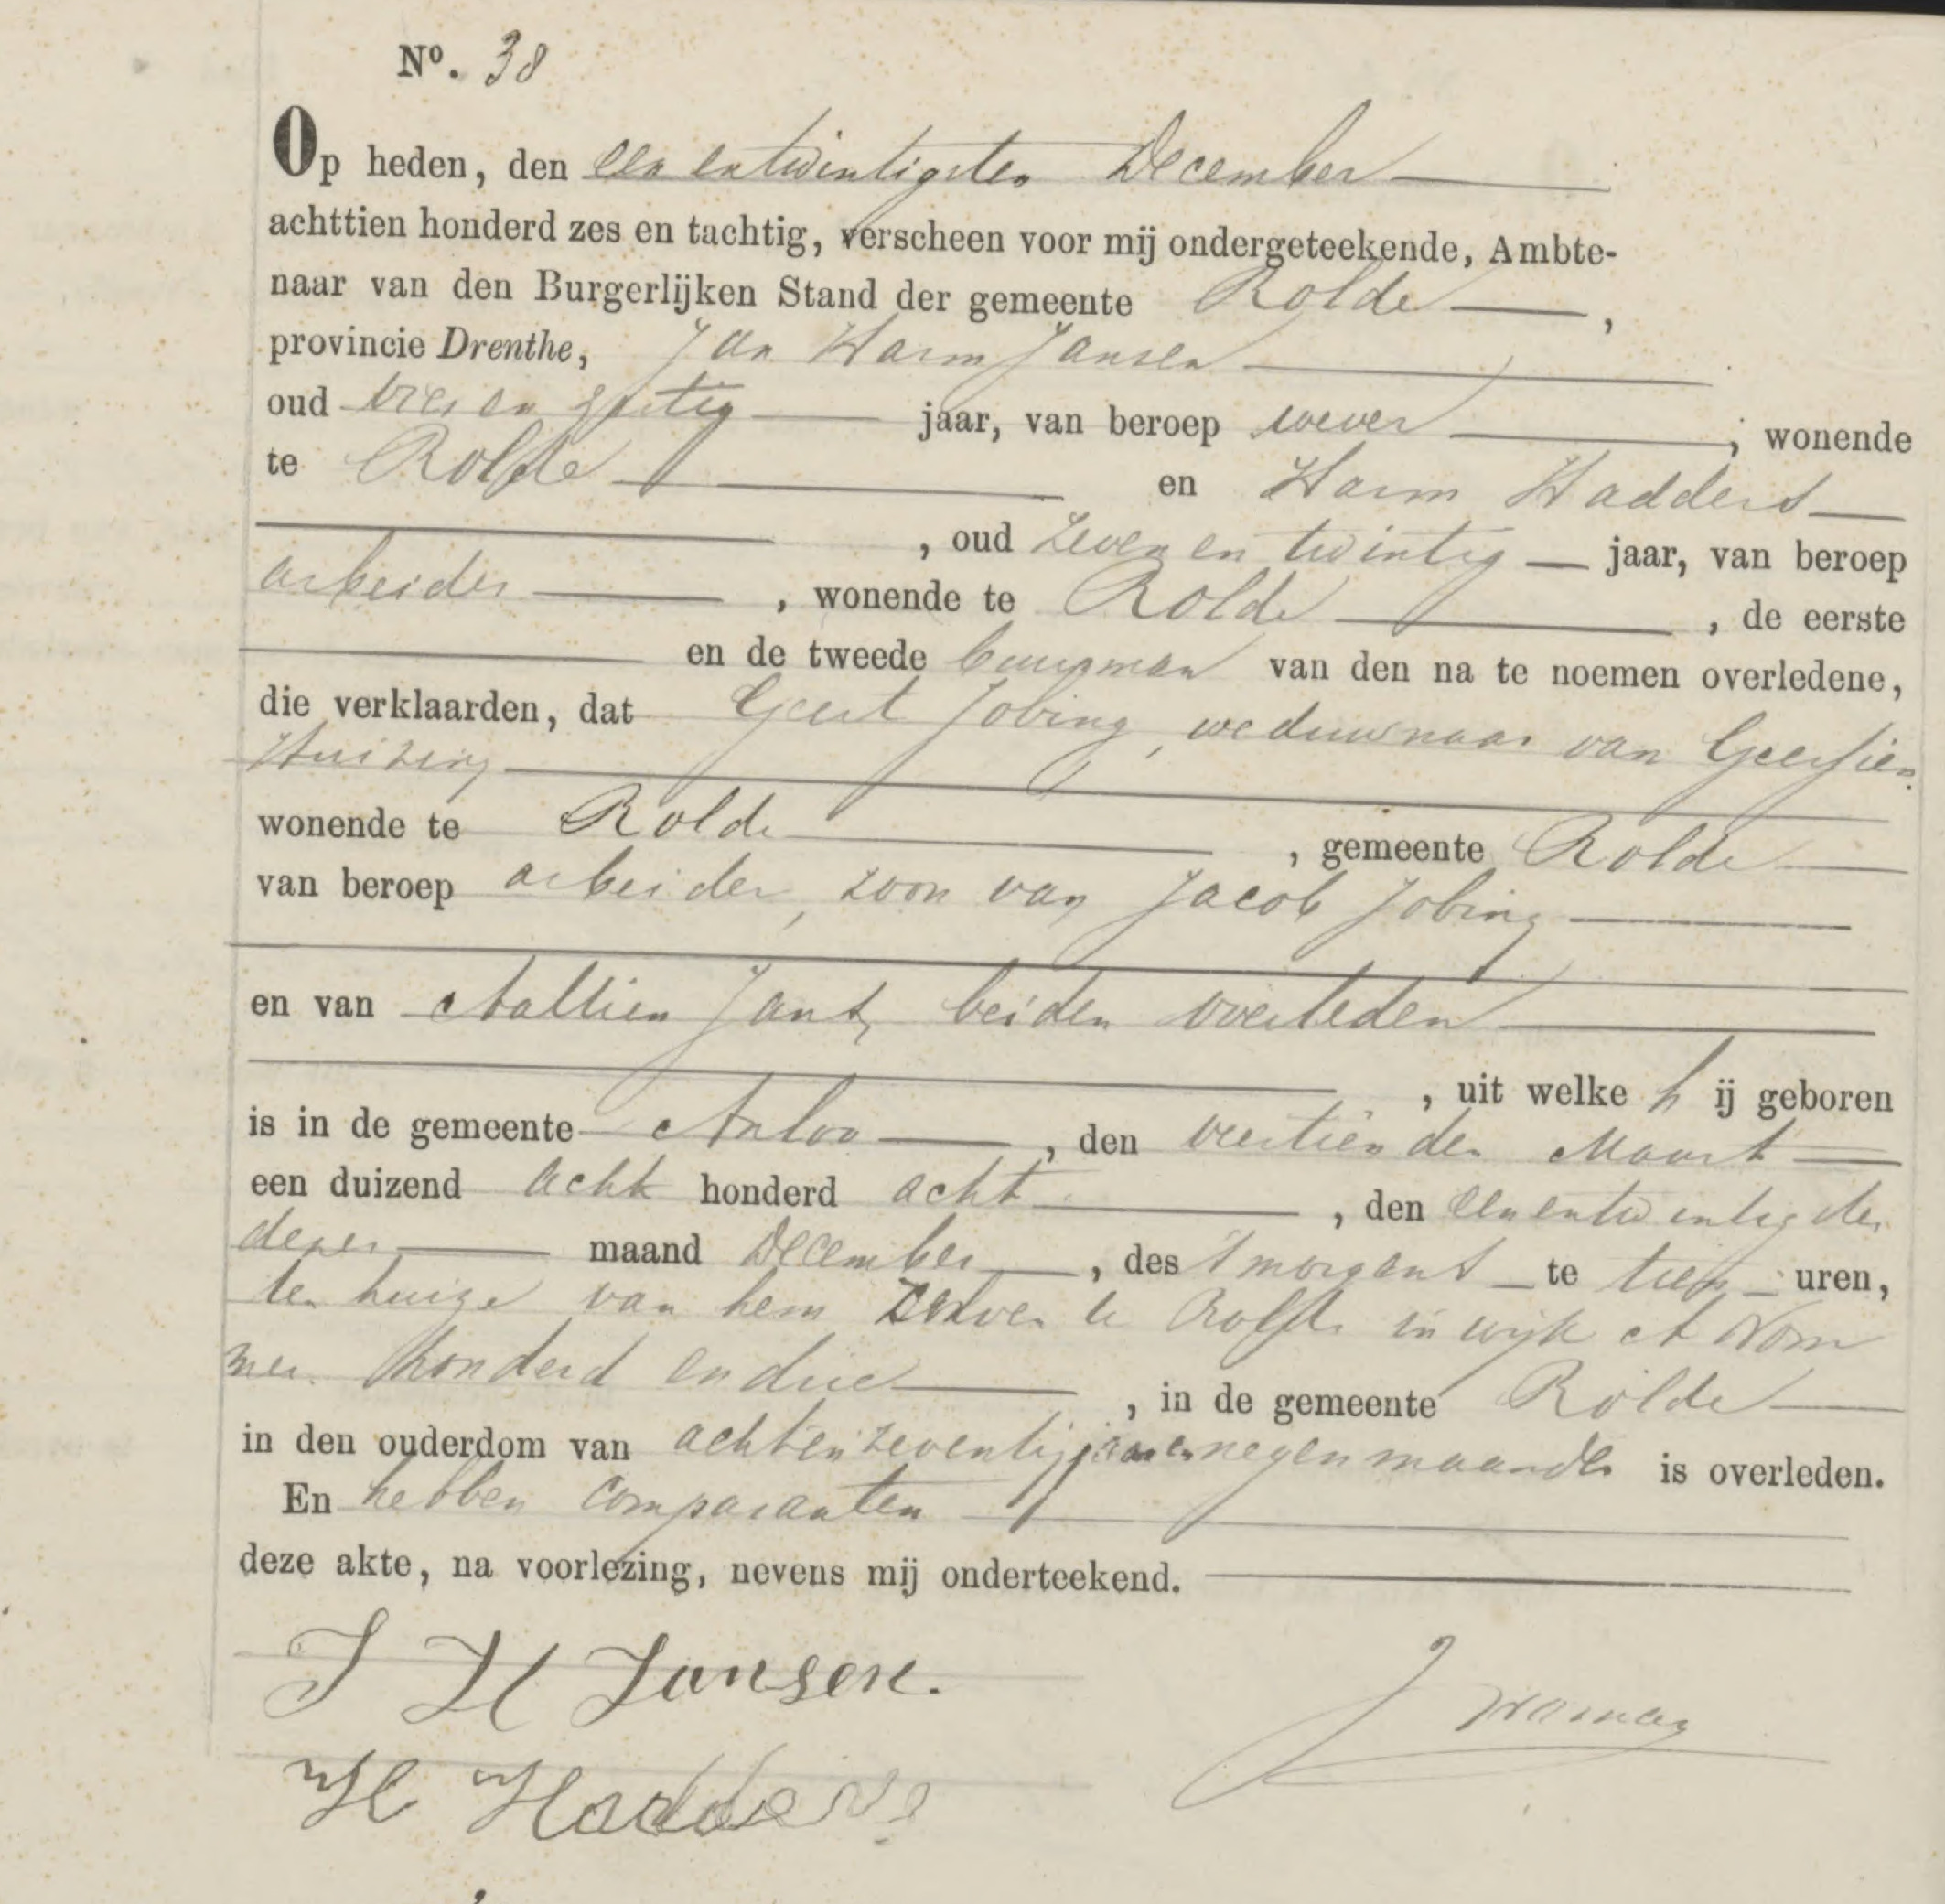 Nº. 38
Op heden, den een entwintigsten December
achttien honderd zes en tachtig, verscheen voor mij ondergeteekende, Ambte-
naar van den Burgerlijken Stand der gemeente Rolde,
provincie Drenthe, Jan Harm Jansen
oud vier en zestig jaar, van beroep wever, wonende
te Rolde en Harm Hadders
, oud zeven en twintig jaar, van beroep
arbeider, wonende te Rolde, de eerste
en de tweede buurman van den na te noemen overledene,
die verklaarden, dat Geert Jobing, weduwnaar van Geessien
Huizing
wonende te Rolde, gemeente Rolde
van beroep arbeider, zoon van Jacob Jobing
en van Aaltien Jans, beiden overleden
, uit welke hij geboren
is in de gemeente Anloo, den veertienden Maart
een duizend acht honderd acht, den eenentwintigsten
dezer maand December, des s morgens te tien uren,
ten huize van hem zelven te Rolde in wijk A Nom
mer honderd en drie, in de gemeente Rolde
in den ouderdom van achtenzeventig jaar en negen maanden is overleden.
En hebben comparanten
deze akte, na voorlezing, nevens mij onderteekend.
J H Jansen.
H Hadders